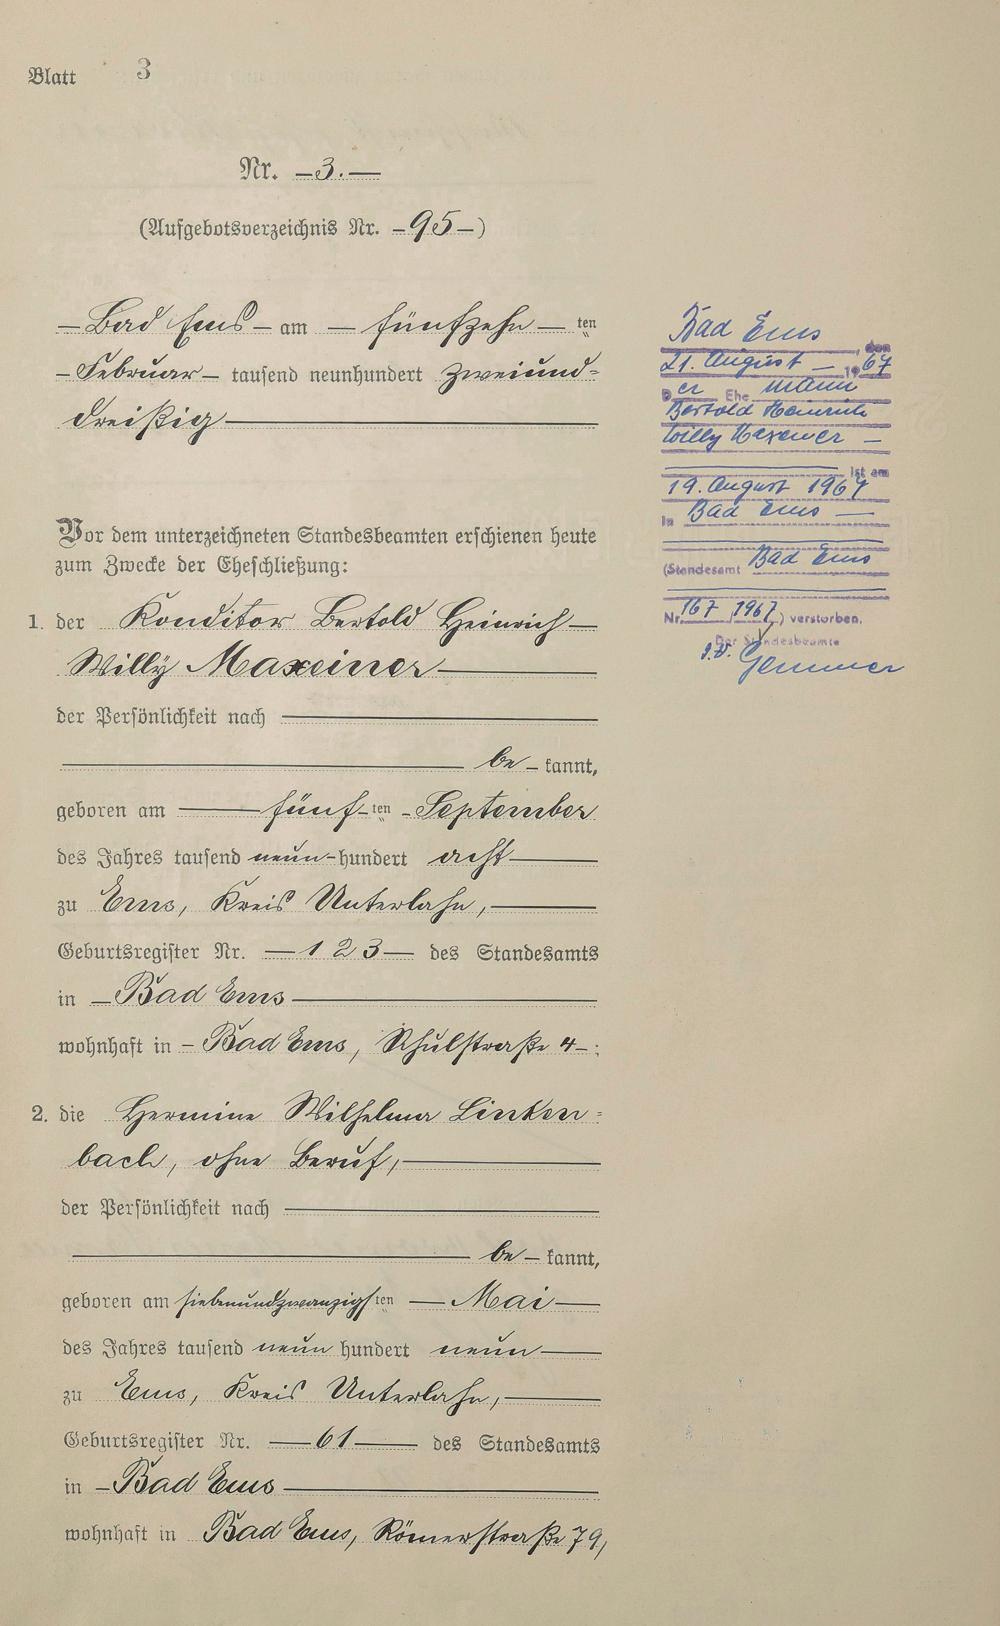 Blatt 3
Nr. 3.
(Aufgebotsverzeichnis Nr. 95)
Bad Ems am fünfzehn ten
Februar tausend neunhundert zweiund=
dreißig
Vor dem unterzeichneten Standesbeamten erschienen heute
zum Zwecke der Eheschließung:
1. der Konditor Bertold Heinrich
Willy Maxeiner
der Persönlichkeit nach
be kannt,
geboren am fünf ten September
des Jahres tausend neun-hundert acht
zu Ems, Kreis Unterlahn,
Geburtsregister Nr. 123 des Standesamts
in Bad Ems
wohnhaft in Bad Ems, Schulstraße 4 ;
2. die Hermine Wilhelma Linken=
bach, ohne Beruf,
der Persönlichkeit nach
be kannt,
geboren am siebenundzwanzigsten Mai
des Jahres tausend neun hundert neun
zu Ems, Kreis Unterlahn,
Geburtsregister Nr. 61 des Standesamts
in Bad Ems
wohnhaft in Bad Ems, Römerstraße 79,
Bad Ems, den
21. August 1967
Der Ehemann
Bertold Heinrich
Willy Maxeiner
ist am
19. August 1967
in Bad Ems
(Standesamt Bad Ems
Nr. 167/1967) verstorben.
Der Standesbeamte
I.V. Gemmer